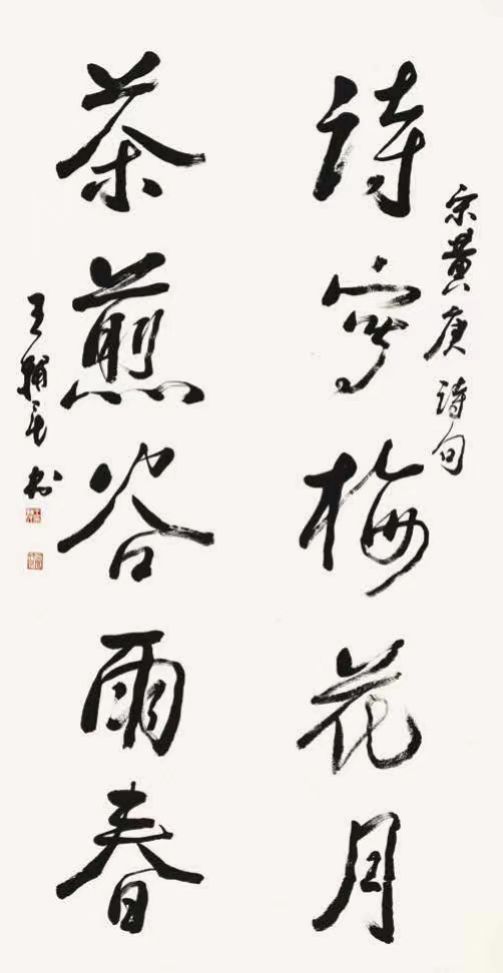 诗写梅花月
宋黄庚诗句
茶煎谷雨春
王辅民书